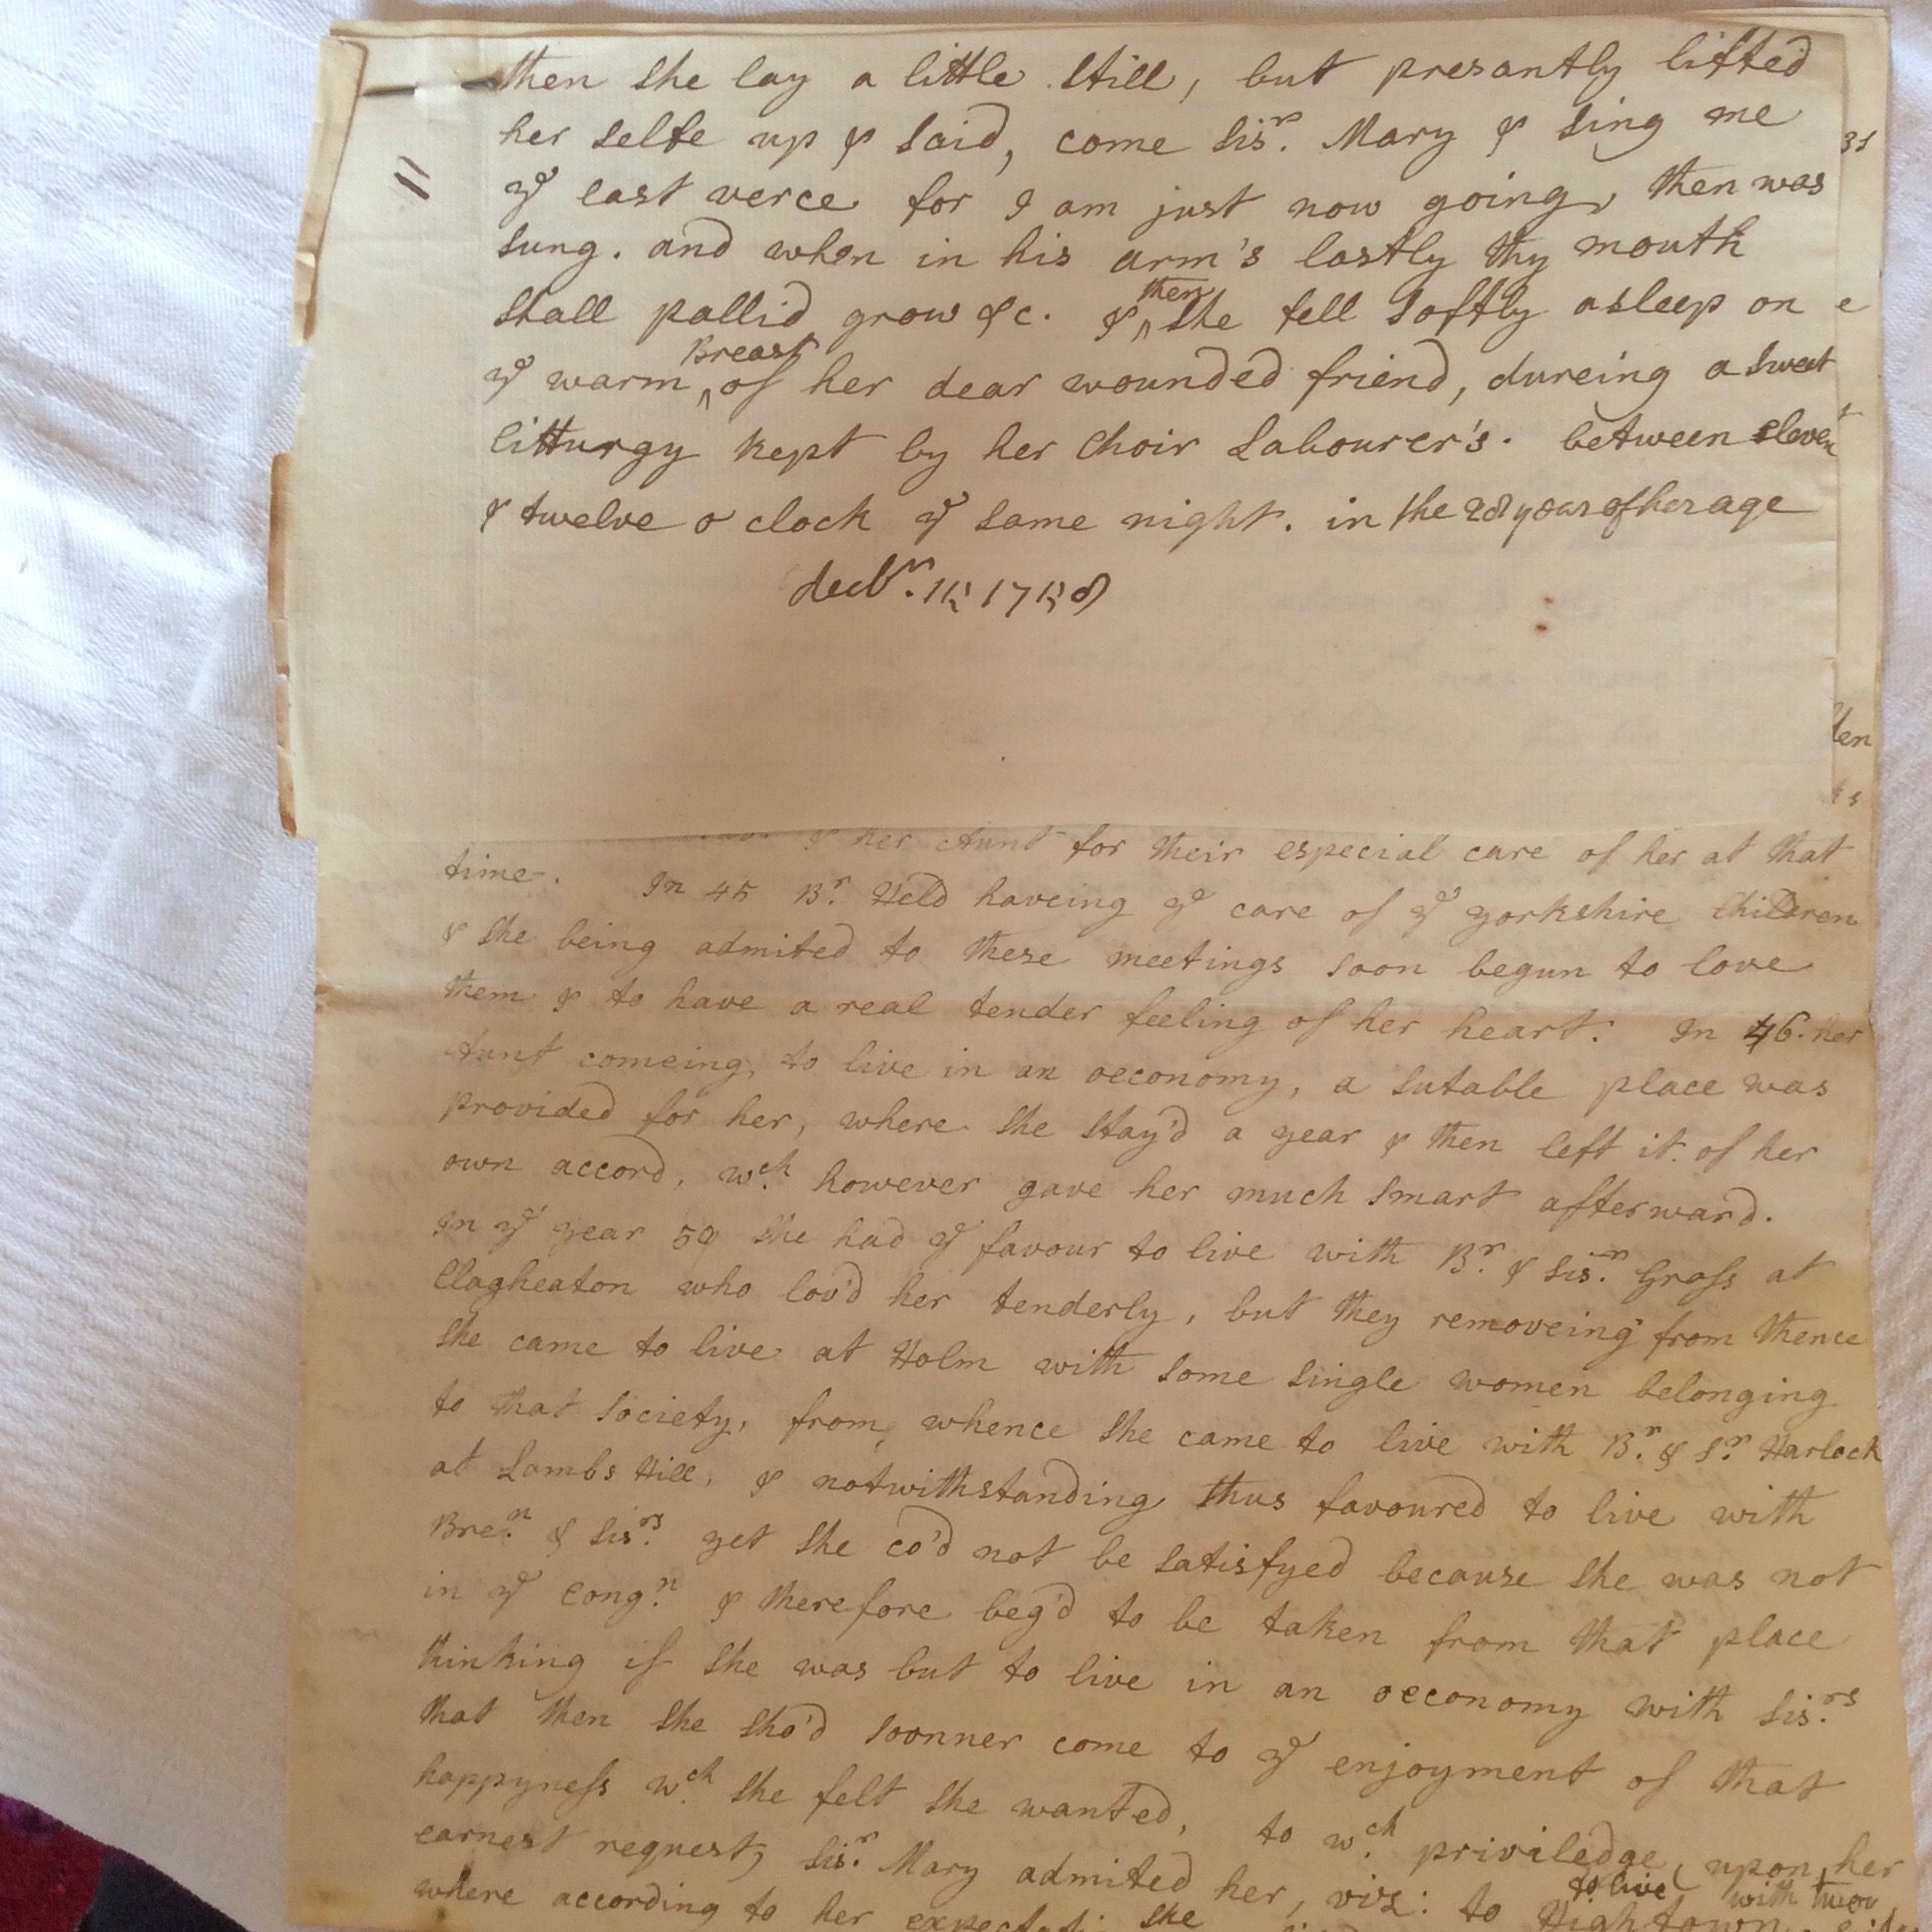 then she lay a little still, but presantly lifted
her selfe up & said, come Sisr. Mary & sing me
ye last verce for I am just now going, then was
sung. and when in his arm's lastly thy mouth
shall pallid grow &c. & then she fell softly asleep on
ye warm Breast of her dear wounded friend, dureing a sweet
litturgy kept by her Choir Labourer's. between eleven
& twelve o clock ye same night. in the 28 year of her age
decbr. 15 1758
& her Aunt for their especial care of her at that
time. In 45 Br. Held haveing ye care of ye yorkshire Children
& she being admited to these meetings soon begun to love
them & to have a real tender feeling of her heart. In 46. her
Aunt comeing to live in an oeconomy, a sutable place was
provided for her, where she stay'd a year & then left it of her
own accord, wch. however gave her much smart afterward.
In ye year 50 she had ye favour to live with Br. & Sisr. Gross at
Clagheaton who lov'd her tenderly, but they removeing from thence
she came to live at Holm with some single women belonging
to that society, from whence she came to live with Br. & Sr. Harlock
at Lambs Hill, & notwithstanding thus favoured to live with
Bren. & Sisrs. yet she co'd not be satisfyed because she was not
in ye Congn. & therefore beg'd to be taken from that place
thinking if she was but to live in an oeconomy with Sisrs.
that then she sho'd soonner come to ye enjoyment of that
happyness wch. she felt she wanted, to wch. priviledge upon her
earnest request, Sisr. Mary admited her, viz: to Hightown to live with two
where according to her she